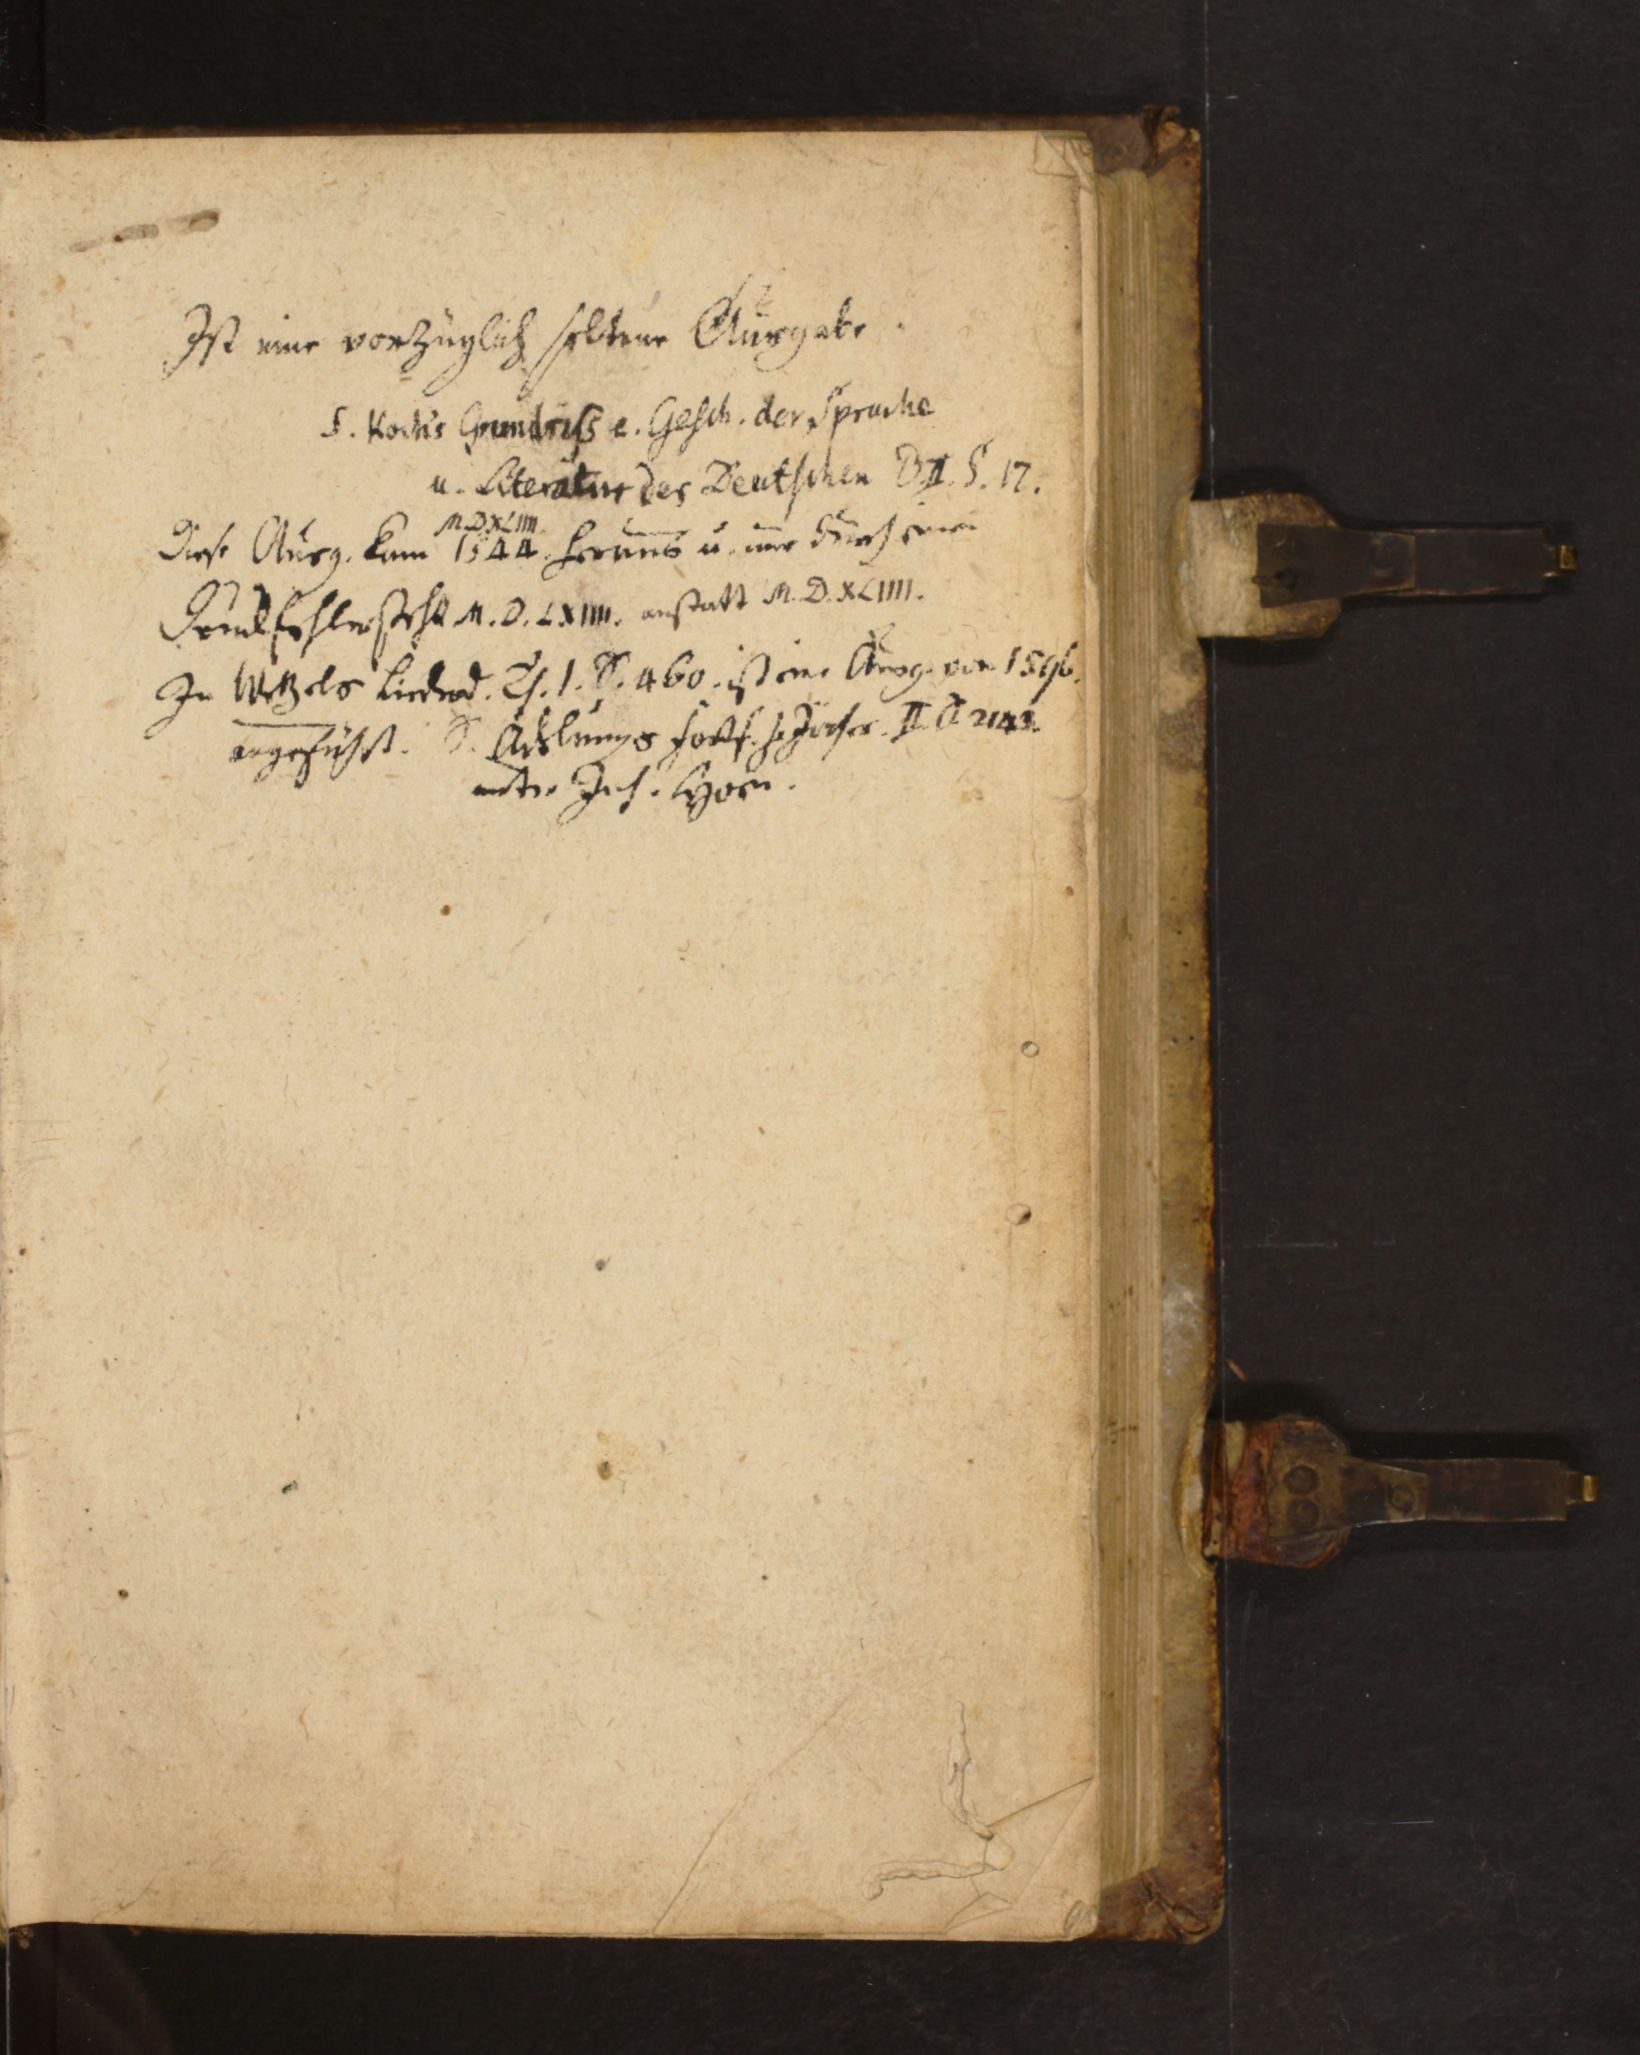 Ist eine vorzüglich seltene Ausgabe.
S. Koch's Grundriß e. Gesch. der Sprache
u. Literatur der Deutschen B. II. S. 17.
M.D.XLIIII.
Diese Ausg. kam 1544. heraus u. nur durch einen
Druckfehler steht M.D.LXIIII. anstatt M.D.XLIIII.
In Wetzels Liederd. Th. 1. S. 460. ist eine Ausg. von 1596.
angeführt. S. Adelungs Forts. Jöcher. II. 2143.
unter Joh.